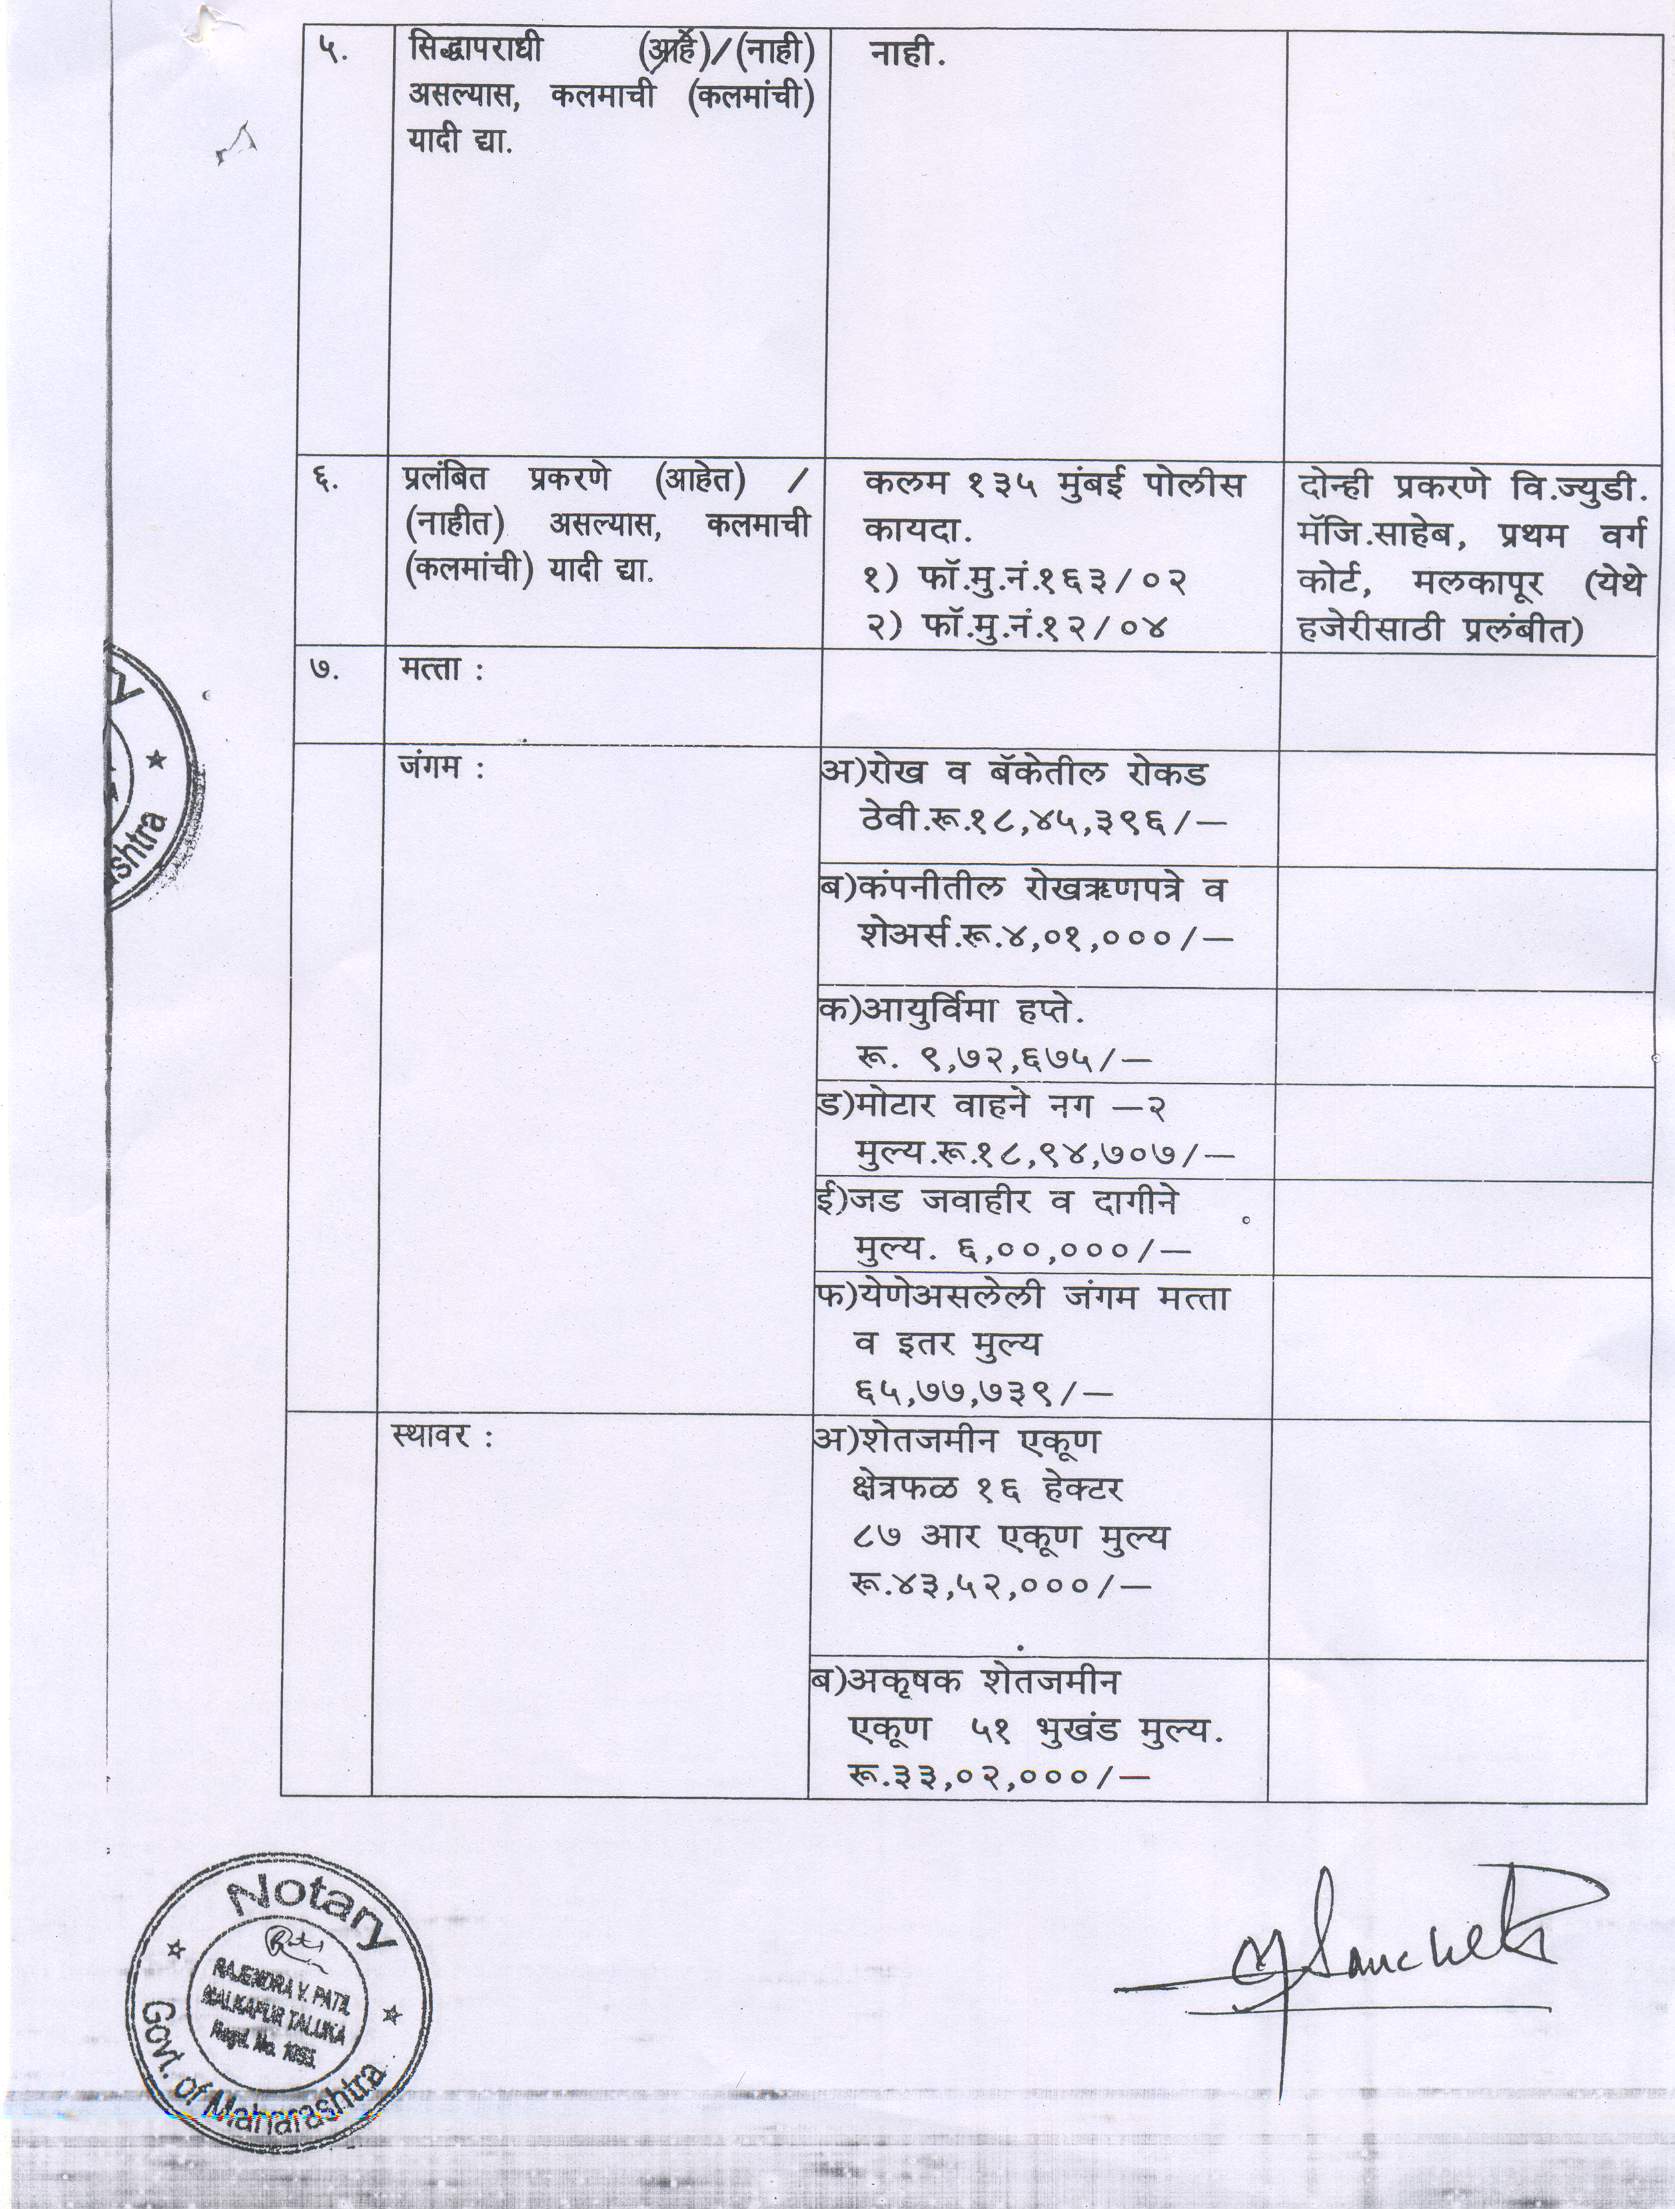 ५. सिद्धापराधी (आहे)/(नाही) नाही.
असल्यास, कलमाची (कलमांची)
यादी द्या.
६. प्रलंबित प्रकरणे (आहेत) /
(नाहीत) असल्यास, कलमाची
(कलमांची) यादी द्या.
कलम १३५ मुंबई पोलीस
कायदा.
१) फॉ.मु.नं.१६३/०२
२) फॉ.मु.नं.१२/०४
दोन्ही प्रकरणे वि.ज्युडी.
मॅजि.साहेब, प्रथम वर्ग
कोर्ट, मलकापूर (येथे
हजेरीसाठी प्रलंबीत)
७. मत्ता :
जंगम :
अ)रोख व बॅकेतील रोकड
ठेवी.रू.१८,४५,३९६/—
ब)कंपनीतील रोखऋणपत्रे व
शेअर्स.रू.४,०१,०००/—
क)आयुर्विमा हप्ते.
रू. ९,७२,६७५/—
ड)मोटार वाहने नग —२
मुल्य.रू.१८,९४,७०७/—
ई)जड जवाहीर व दागीने
मुल्य. ६,००,०००/—
फ)येणेअसलेली जंगम मत्ता
व इतर मुल्य
६५,७७,७३९/—
स्थावर :
अ)शेतजमीन एकूण
क्षेत्रफळ १६ हेक्टर
८७ आर एकूण मुल्य
रू.४३,५२,०००/—
ब)अकृषक शेतजमीन
एकूण ५१ भुखंड मुल्य.
रू.३३,०२,०००/—
shtra
Notary
RAJENDRA V. PATIL
MALKAPUR TALUKA
Regd. No.
Govt. of Maharashtra